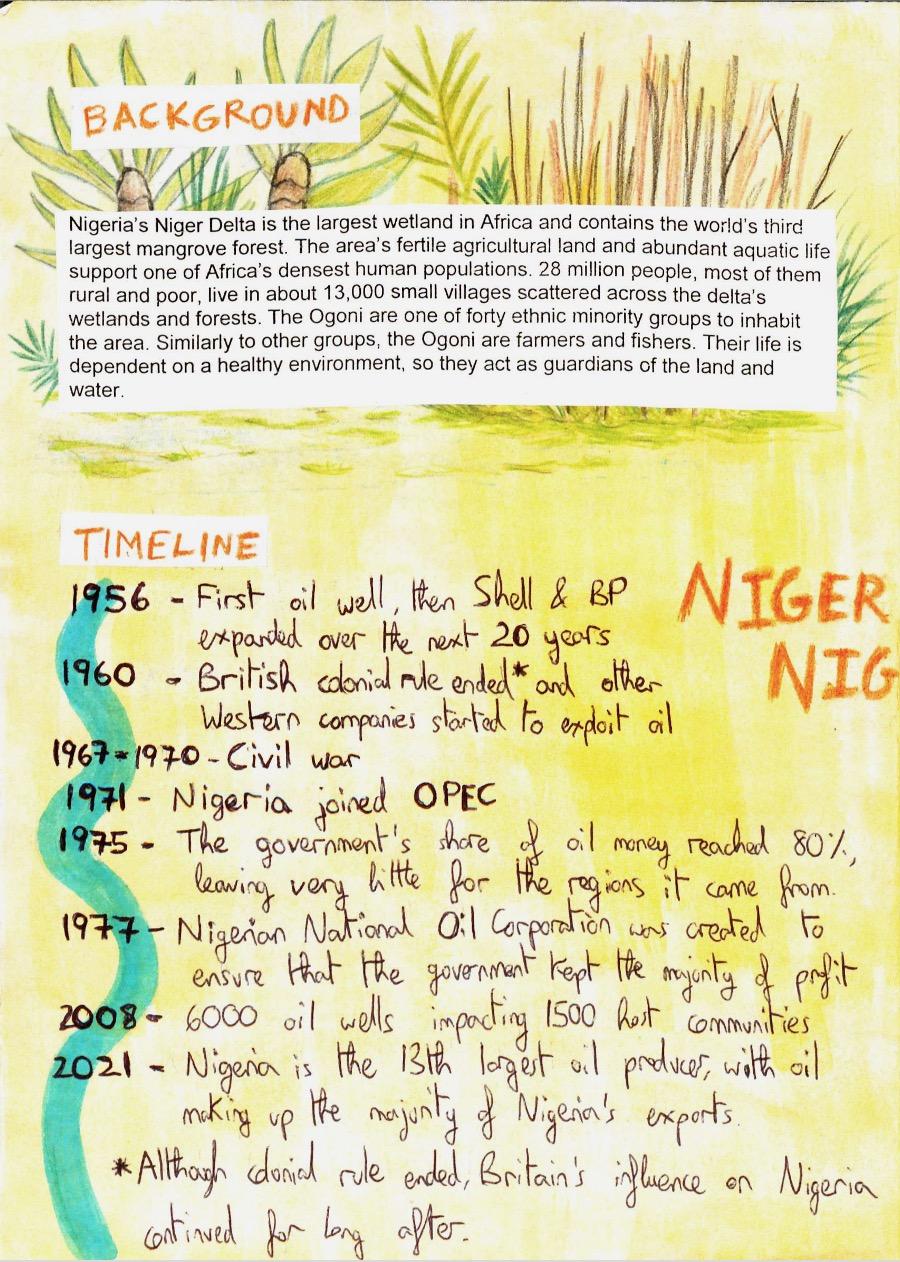 BACKGROUND
Nigeria's Niger Delta is the largest wetland in Africa and contains the world's third
largest mangrove forest. The area's fertile agricultural land and abundant aquatic life
support one of Africa's densest human populations. 28 million people, most of them
rural and poor, live in about 13,000 small villages scattered across the delta's
wetlands and forests. The Ogoni are one of forty ethnic minority groups to inhabit
the area. Similarly to other groups, the Ogoni are farmers and fishers. Their life is
dependent on a healthy environment, so they act as guardians of the land and
water.
TIMELINE
1956 - First oil well, then Shell & BP
expanded over the next 20 years
NIGER
1960 - British colonial rule ended* and other
NIG
Western companies started to exploit oil
1967-1970 - Civil war
1971 - Nigeria joined OPEC
1975 - The government's share of oil money reached 80%,
leaving very little for the regions it came from.
1977 - Nigerian National Oil Corporation was created to
ensure that the government kept the majority of profit
2008 - 6000 oil wells impacting 1500 host communities
2021 - Nigeria is the 13th largest oil producer, with oil
making up the majority of Nigeria's exports.
*Although colonial rule ended, Britain's influence on Nigeria
continued for long after.